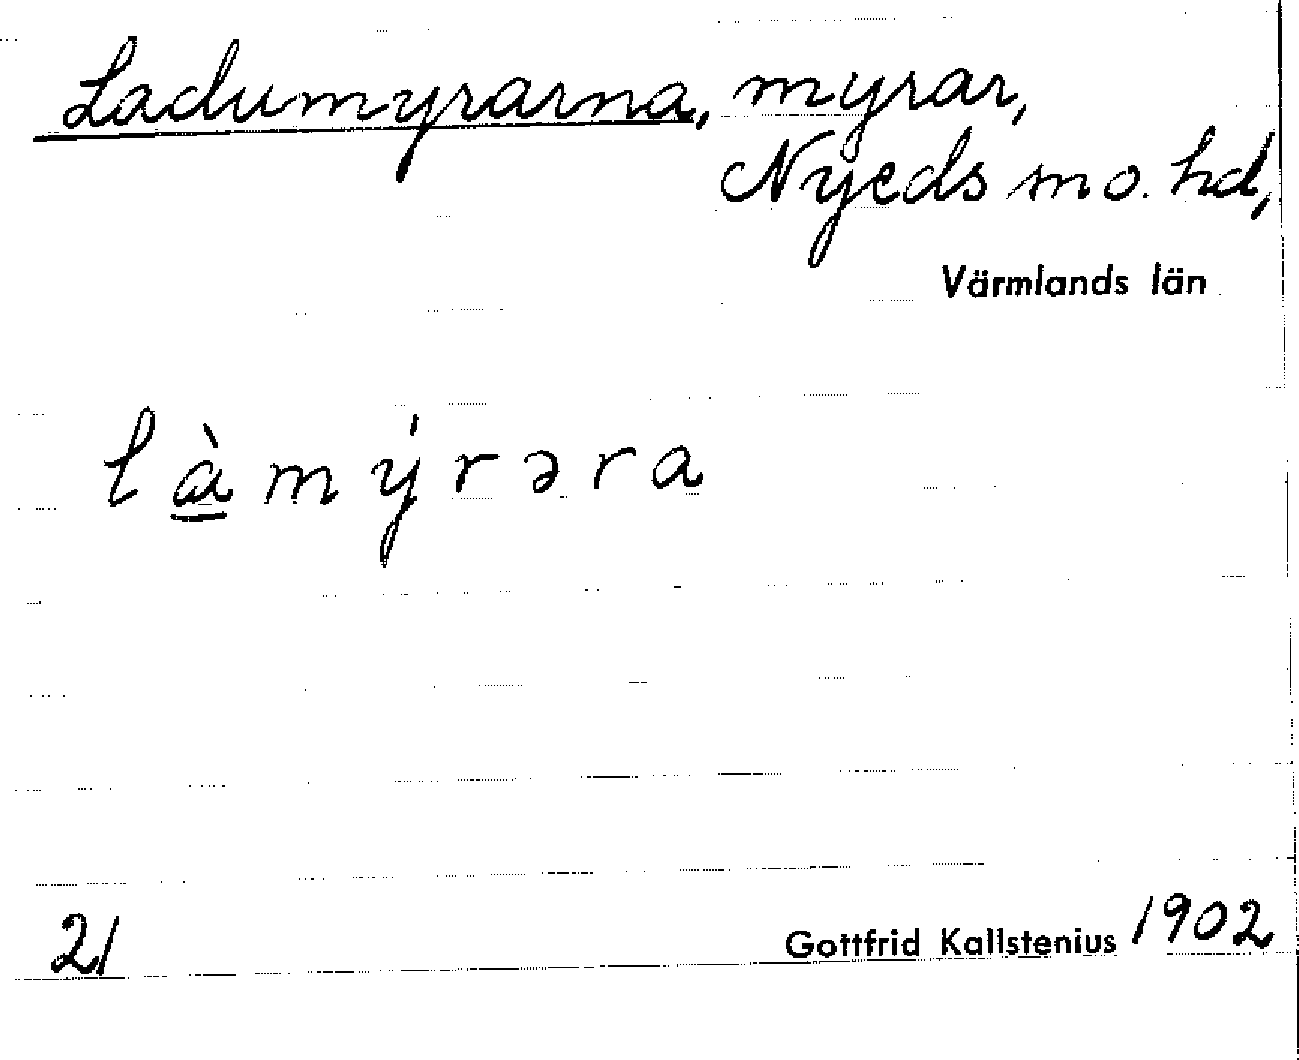 Ladumyrarna, myrar,
Nyeds m o. hd,
Värmlands län
l à̱ m ý r ə r a
21
Gottfrid Kallstenius 1902